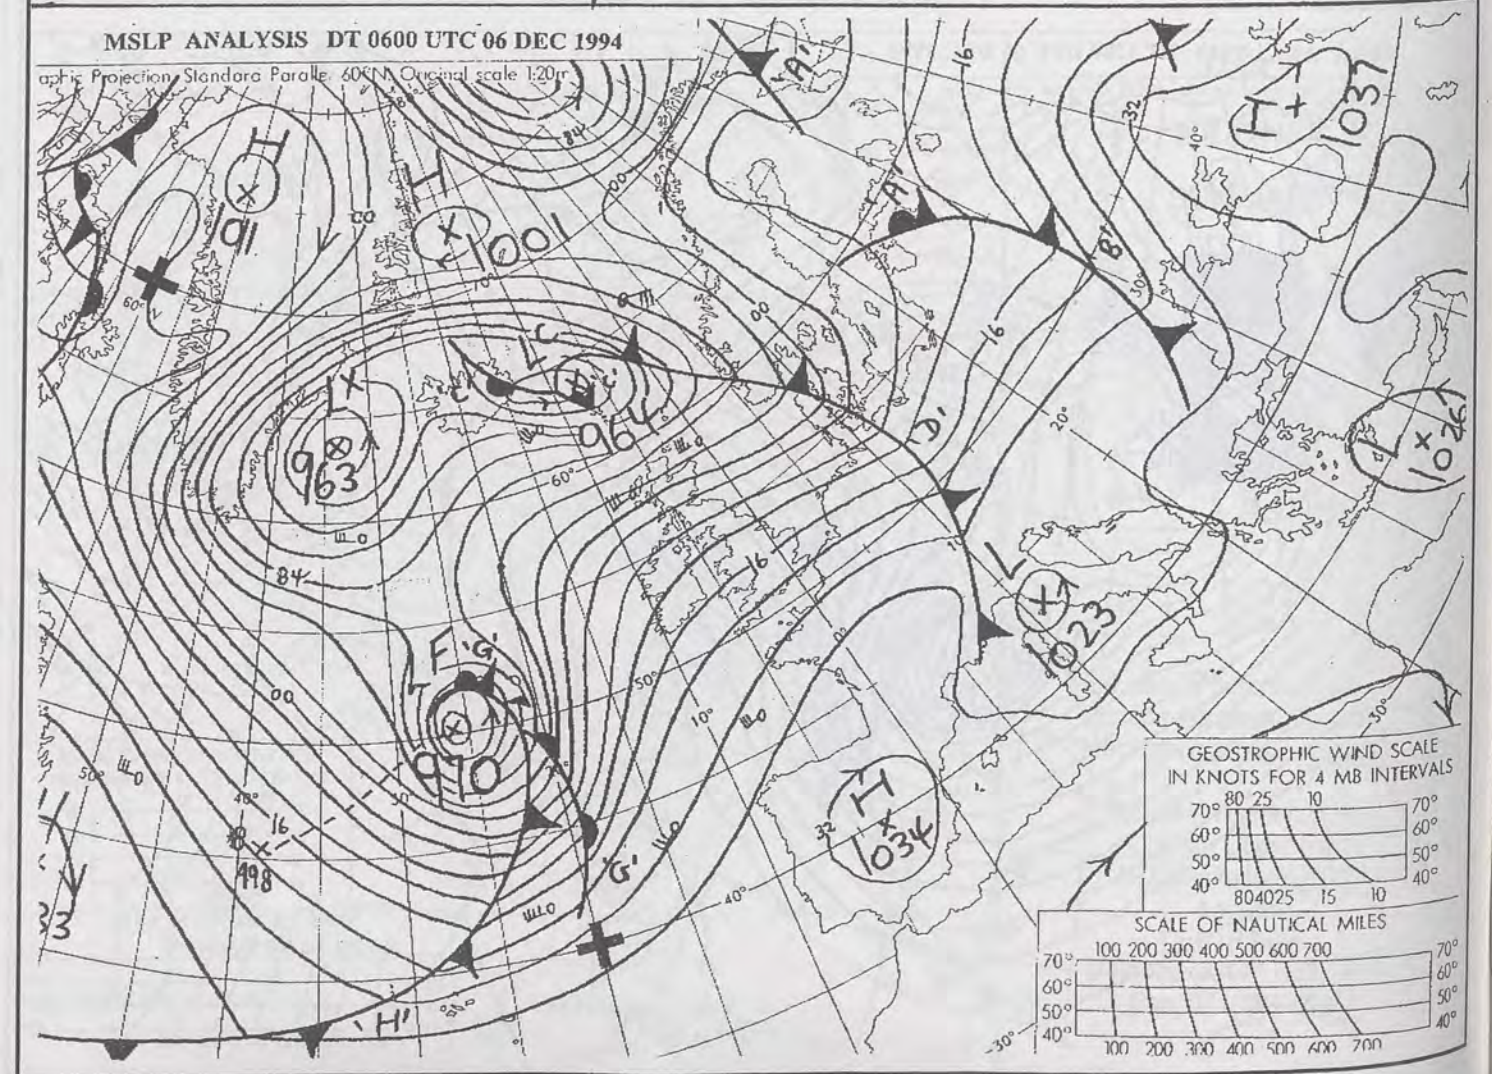 MSLP ANALYSIS DT 0600 UTC 06 DEC 1994
aphic Projection Standard Parallel 60°N Original scale 1:20m
'A'
16
H
1037
84
H
H
32
40°
00
'A'
991
00
1001
'B'
30°
60°N
70°
00
L C
16
L X
'C'
'C'
20°
L
1026
963
964
'D'
60°
84
16
L
1023
F 'G'
0°
00
50°
10°
970
50°
40°
50°
H
32
1034
30°
16
498
'G'
40°
33
'H'
30°
GEOSTROPHIC WIND SCALE
IN KNOTS FOR 4 MB INTERVALS
80 25 10
70° 70°
60° 60°
50° 50°
40° 40°
80 40 25 15 10
SCALE OF NAUTICAL MILES
100 200 300 400 500 600 700
70° 70°
60° 60°
50° 50°
40° 40°
100 200 300 400 500 600 700